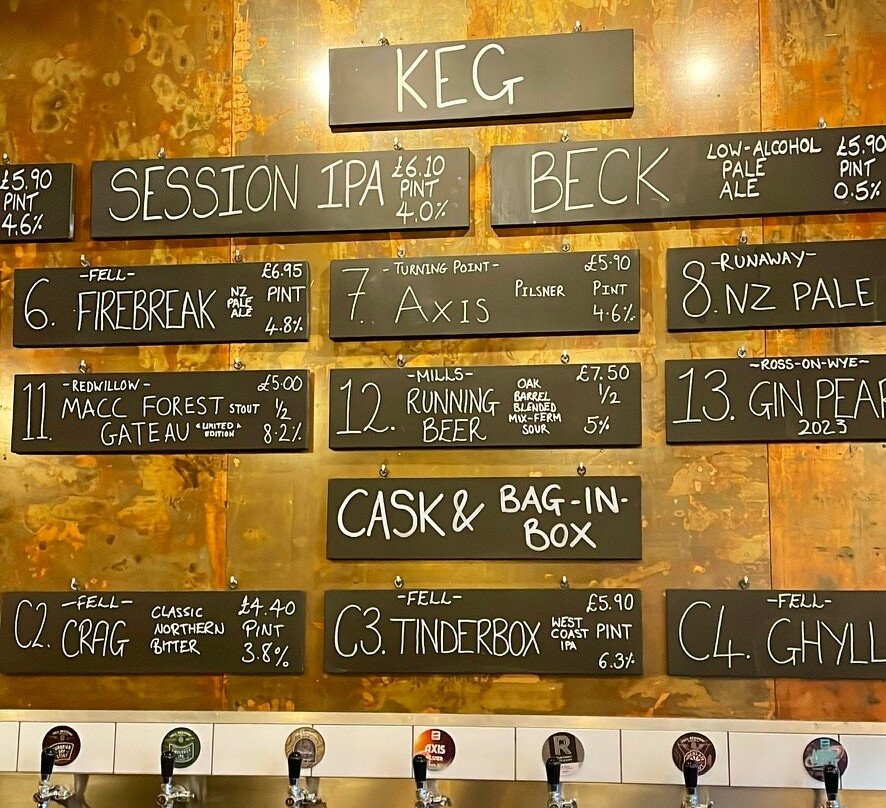 KEG
£5.90
PINT
4.6%
SESSION IPA
£6.10
PINT
4.0%
BECK
LOW-ALCOHOL
PALE
ALE
£5.90
PINT
0.5%
6.
-FELL-
FIREBREAK
NZ
PALE
ALE
£6.95
PINT
4.8%
7.
-TURNING POINT-
AXIS
PILSNER
£5.90
PINT
4.6%
8.
-RUNAWAY-
NZ PALE
11.
-REDWILLOW-
MACC FOREST
GATEAU
STOUT
"LIMITED
EDITION
£5.00
1/2
8.2%
12.
-MILLS-
RUNNING
BEER
OAK
BARREL
BLENDED
MIX-FERM
SOUR
£7.50
1/2
5%
13.
-ROSS-ON-WYE-
GIN PEAR
2023
CASK & BAG-IN-
BOX
C2.
-FELL-
CRAG
CLASSIC
NORTHERN
BITTER
£4.40
PINT
3.8%
C3.
-FELL-
TINDERBOX
WEST
COAST
IPA
£5.90
PINT
6.3%
C4.
-FELL-
GHYLL
AXIS
R